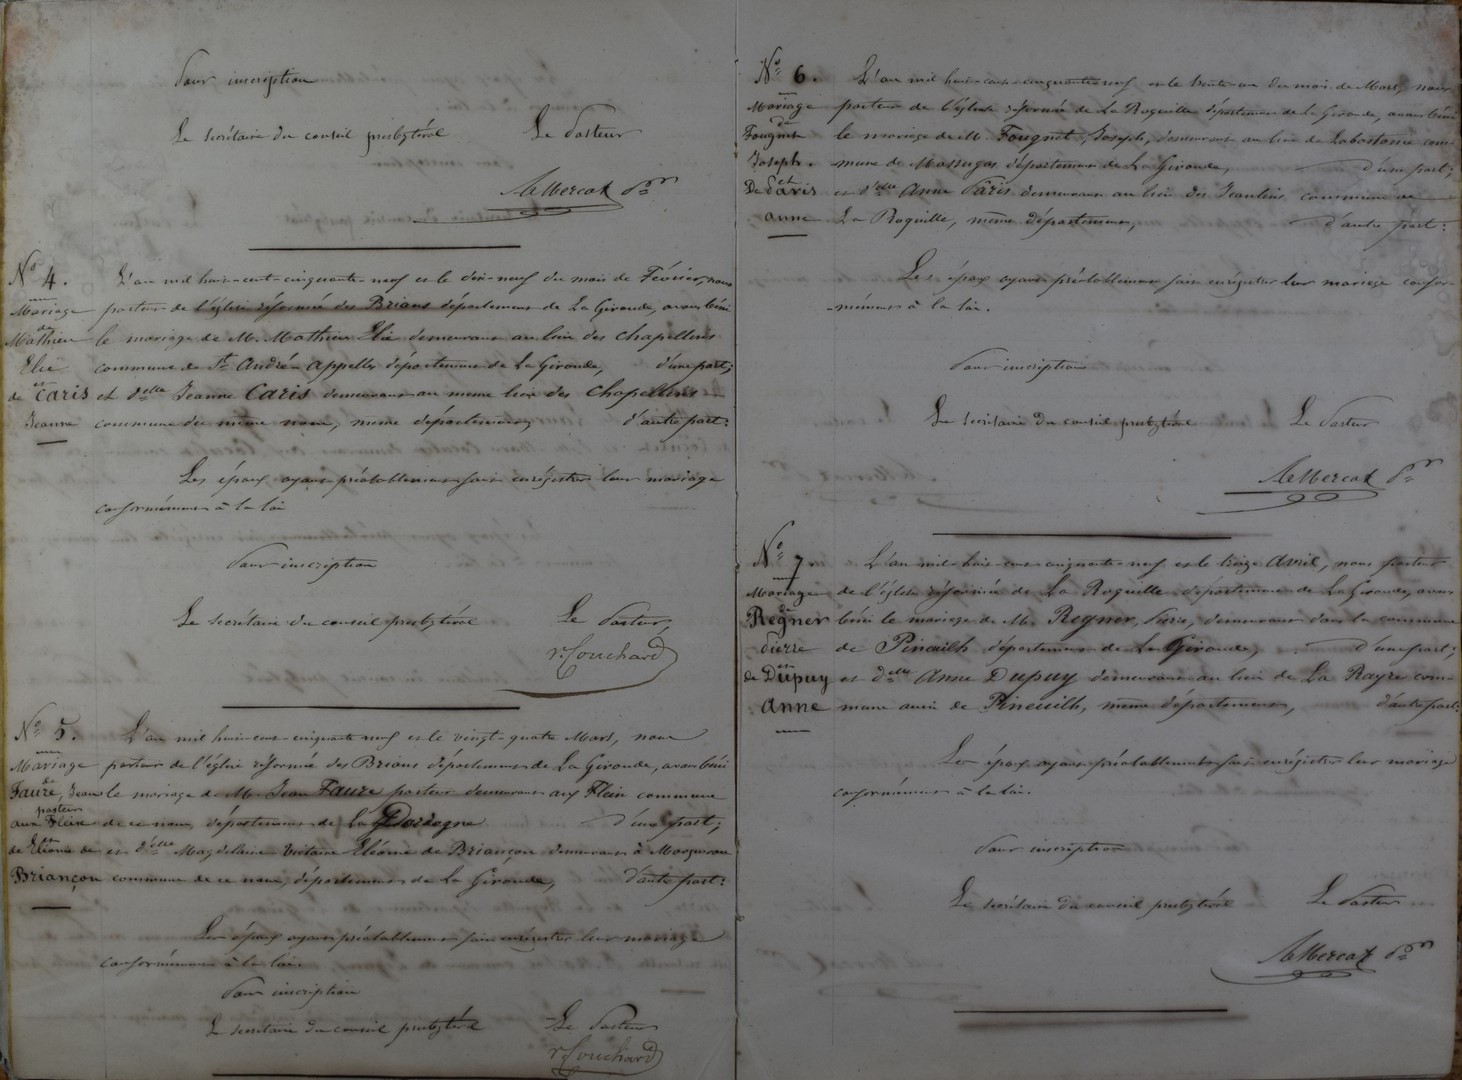 Pour inscription
Le secrétaire du conseil presbytéral Le Pasteur
A. Mercat Pr
No 4. L'an mil huit-cent-cinquante-neuf et le dix-neuf du mois de Février, nous
Mariage pasteur de l'église réformée des Brians département de La Gironde, avons béni
de Mathieu le mariage de M. Mathieu Elie demeurant au lieu des Chapellens
Elie commune de St André-Appelles département de La Gironde, d'une part;
et de Caris et delle Jeanne Caris demeurant au même lieu des Chapellens
Jeanne commune du même nom, même département, d'autre part:
Les époux ayant préalablement fait enrégistrer leur mariage
conformément à la loi
Pour inscription
Le secrétaire du conseil presbytéral Le Pasteur,
Vr Couchard
No 5. L'an mil huit-cent-cinquante neuf et le vingt-quatre Mars, nous
Mariage pasteur de l'église réformée des Brians département de La Gironde, avons béni
de Faure, Jean le mariage de M. Jean Faure pasteur demeurant aux Fleix commune
pasteur aux Fleix de ce nom, département de La Dordogne d'une part;
et de Eléonie de et delle Magdelaine Victoire Eléonie de Briançon demeurant à Margueron
Briançon commune de ce nom, département de La Gironde, d'autre part:
Les époux ayant préalablement fait enrégistrer leur mariage
conformément à la loi.
Pour inscription
Le secrétaire du conseil presbytéral Le Pasteur
Vr Couchard
No 6. L'an mil huit-cent-cinquante neuf et le trente-un du mois de Mars, nous
Mariage pasteur de l'église réformée de La Roquille département de la Gironde, avons béni
de Fougnet le mariage de M. Fougnet, Joseph, demeurant au lieu de Labastanie com-
Joseph. mune de Massugas département de La Gironde, d'une part;
et De Pâris et delle Anne Pâris demeurant au lieu des Jeantins commune de
Anne La Roquille, même département, d'autre part:
Les époux ayant préalablement fait enrégistrer leur mariage confor-
-mément à la loi.
Pour inscription
Le secrétaire du conseil presbytéral Le Pasteur
A. Mercat Pr
No 7 L'an mil-huit-cent cinquante-neuf et le treize Avril, nous pasteur
Mariage de l'église réformée de La Roquille département de La Gironde, avons
de Regner béni le mariage de M. Regner, Pierre, demeurant dans la commune
Pierre de Pineuilh département de La Gironde, d'une part;
et de Dupuy et delle Anne Dupuy demeurant au lieu de La Rayre com-
Anne mune aussi de Pineuilh, même département, d'autre part:
Les époux ayant préalablement fait enrégistrer leur mariage
conformément à la loi.
Pour inscription
Le secrétaire du conseil presbytéral Le Pasteur
A. Mercat Pr